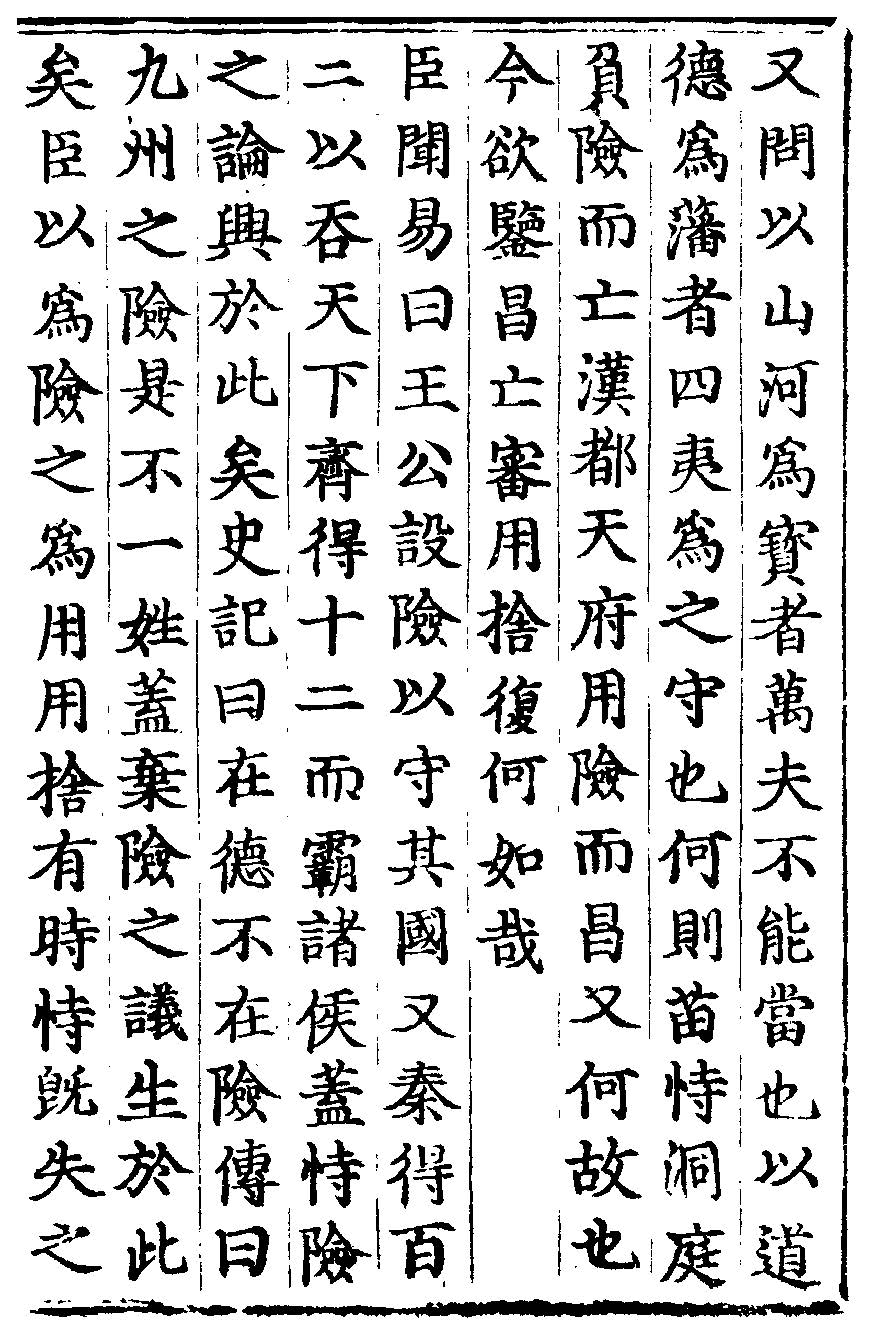 又問以山河為寳者萬夫不能當也以道
德為藩者四夷為之守也何則苗恃洞庭
負險而亡漢都天府用險而昌又何故也
今欲鑒昌亡審用捨復何如哉
臣聞易曰王公設險以守其國又秦得百
二以吞天下齊得十二而霸諸侯蓋恃險
之論興於此矣史記曰在德不在險傳曰
九州之險是不一姓蓋棄險之議生於此
矣臣以為險之為用用捨有時恃旣失之